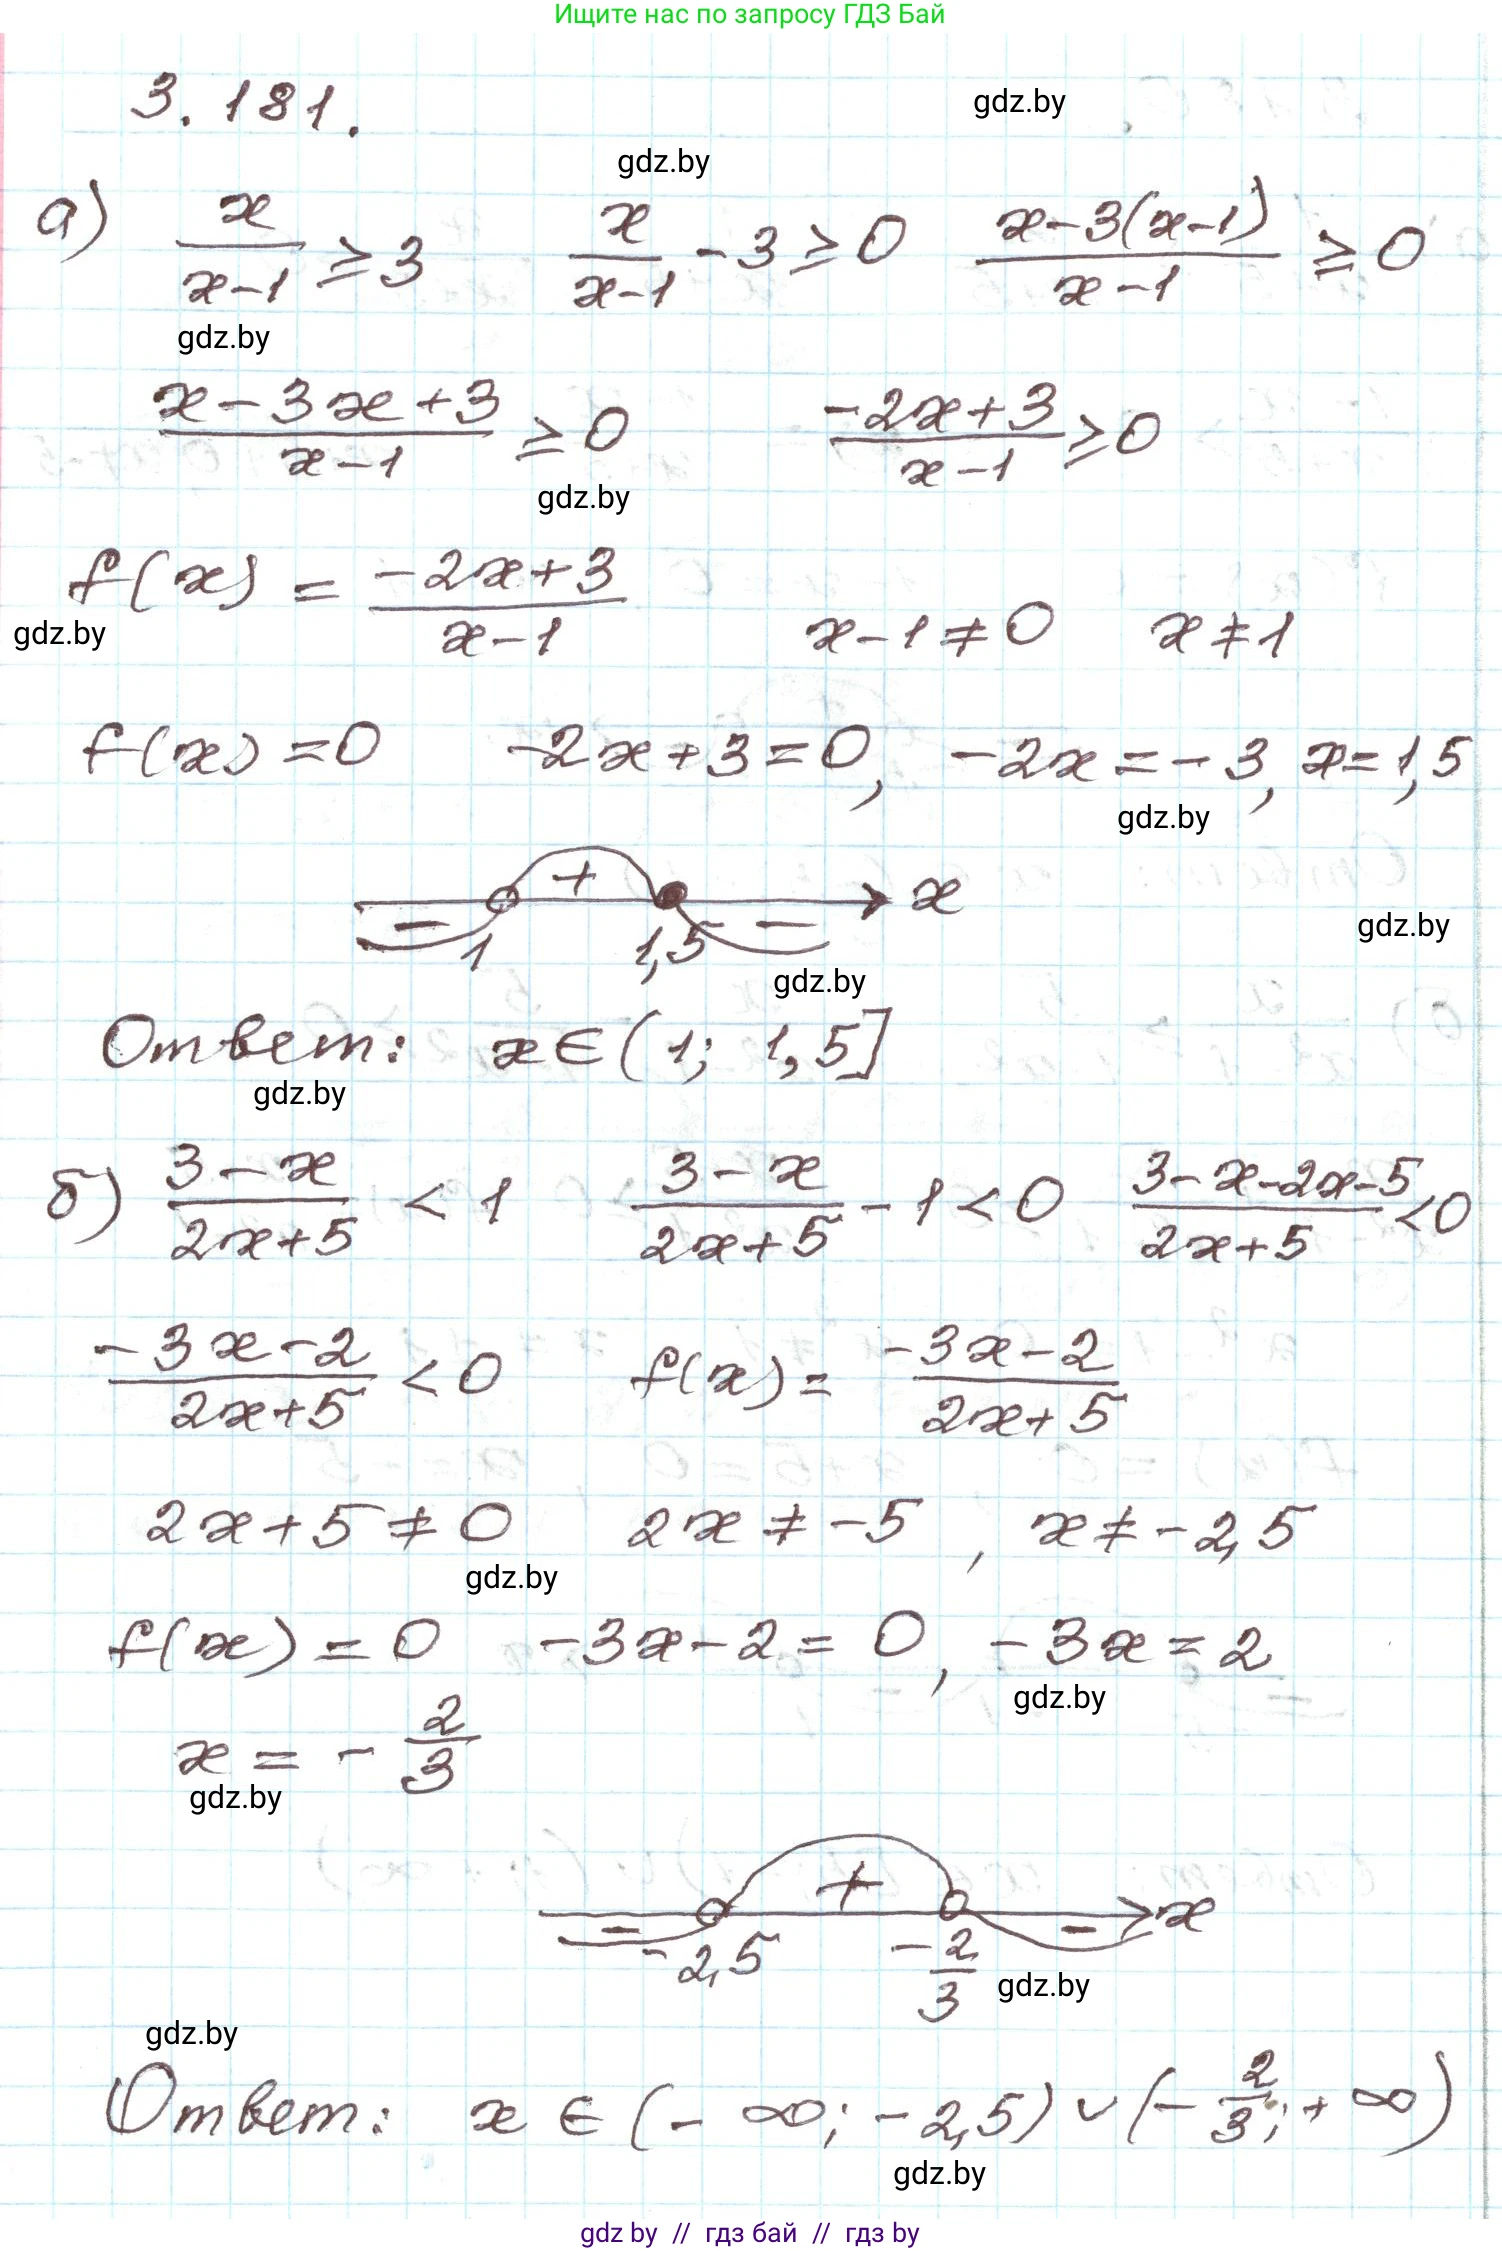 Ищите нас по запросу ГДЗ Бай
3.181.
gdz.by
gdz.by
а) x/(x-1) ≥ 3   x/(x-1) - 3 ≥ 0   (x-3(x-1))/(x-1) ≥ 0
gdz.by
(x-3x+3)/(x-1) ≥ 0   (-2x+3)/(x-1) ≥ 0
gdz.by
f(x) = (-2x+3)/(x-1)   x-1≠0   x≠1
gdz.by
f(x)=0   -2x+3=0, -2x=-3, x=1,5
gdz.by
+ x
- 1 1,5 -
gdz.by
gdz.by
Ответ: x∈(1; 1,5]
gdz.by
б) (3-x)/(2x+5) < 1   (3-x)/(2x+5) - 1 < 0   (3-x-2x-5)/(2x+5) < 0
(-3x-2)/(2x+5) < 0   f(x) = (-3x-2)/(2x+5)
2x+5≠0   2x≠-5, x≠-2,5
gdz.by
f(x)=0   -3x-2=0, -3x=2
gdz.by
x = -2/3
gdz.by
+ x
- -2,5 -2/3 -
gdz.by
gdz.by
Ответ: x∈(-∞; -2,5)∪(-2/3; +∞)
gdz.by
gdz by // гдз бай // гдз by